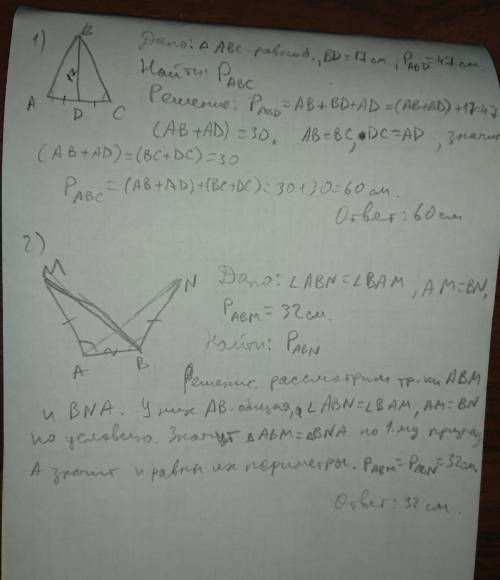 1)
B
17
A
D
C
Дано: △ ABC-равноб., BD=17см, P_ABD=47см.
Найти: P_ABC
Решение: P_ABD=AB+BD+AD=(AB+AD)+17=47
(AB+AD)=30, AB=BC, DC=AD, значит
(AB+AD)=(BC+DC)=30
P_ABC=(AB+AD)+(BC+DC)=30+30=60см.
Ответ: 60см.
2)
M
N
A
B
Дано: ∠ABN=∠BAM, AM=BN,
P_ABM=32см.
Найти: P_ABN
Решение. рассмотрим тр-ки ABM
и BNA. У них AB-общая, ∠ABN=∠BAM, AM=BN
по условию. Значит △ABM=△BNA по 1-му призну
А значит и равны их периметры. P_ABM=P_ABN=32см
Ответ: 32см.